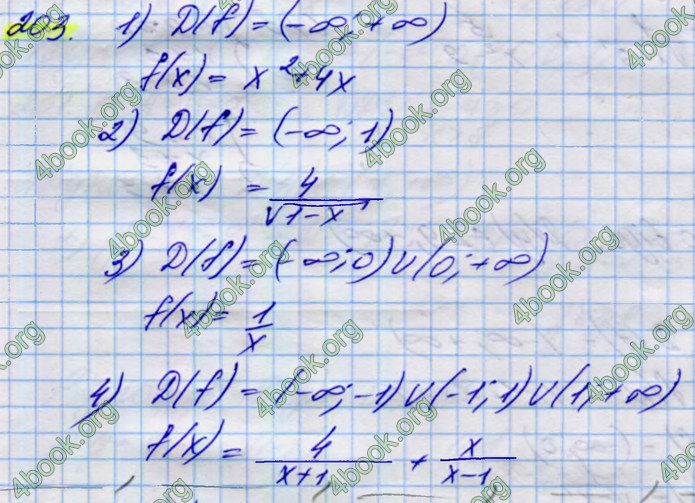 203. 1) D(f) = (-∞; +∞)
f(x) = x² + 4x
2) D(f) = (-∞; 1)
f(x) = 4/√(1-x)
3) D(f) = (-∞; 0) ∪ (0; +∞)
f(x) = 1/x
4) D(f) = (-∞; -1) ∪ (-1; 1) ∪ (1; +∞)
f(x) = 4/(x+1) + x/(x-1)
4book.org